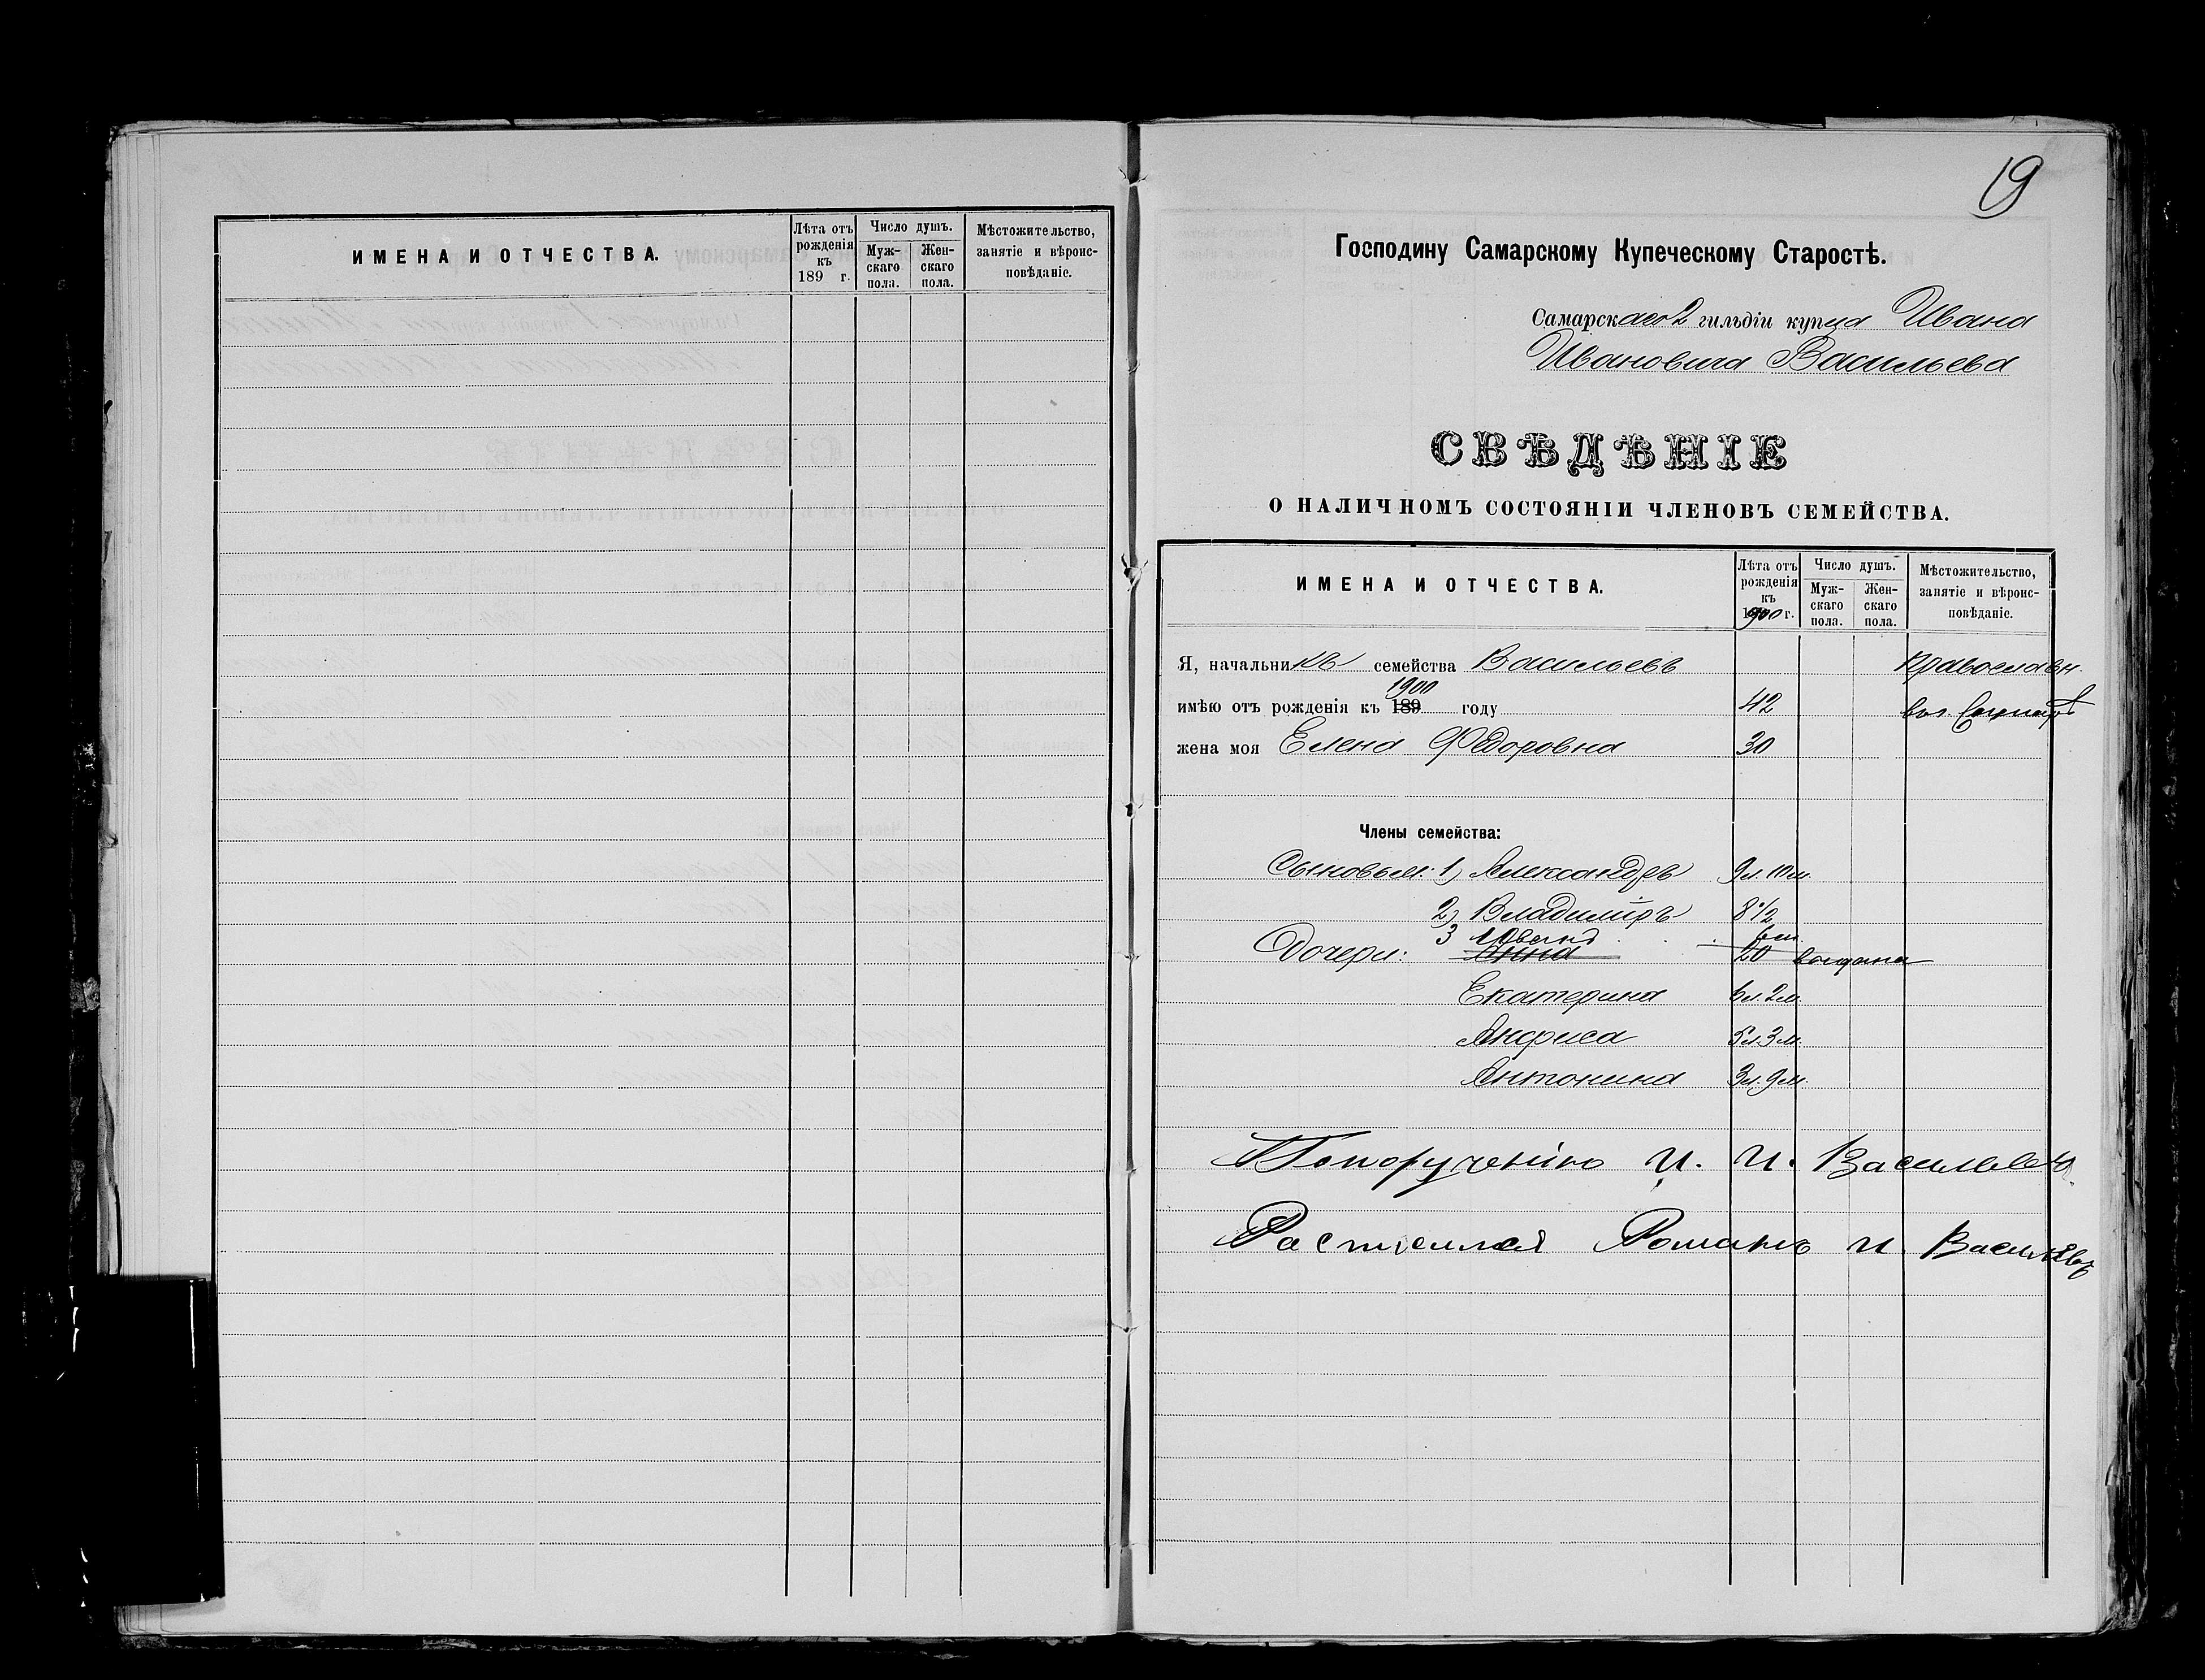 ИМЕНА И ОТЧЕСТВА.
Лѣта отъ рожденія къ 189 г.
Число душъ.
Муж-скаго пола.
Жен-скаго пола.
Мѣстожительство, занятіе и вѣроис-повѣданіе.
19
Господину Самарскому Купеческому Старостѣ.
Самарскаго 2 гильдіи купца Ивана
Ивановича Васильева
СВѢДѢНІЕ
О НАЛИЧНОМЪ СОСТОЯНІИ ЧЛЕНОВЪ СЕМЕЙСТВА.
ИМЕНА И ОТЧЕСТВА.
Лѣта отъ рожденія къ 1900 г.
Число душъ.
Муж-скаго пола.
Жен-скаго пола.
Мѣстожительство, занятіе и вѣроис-повѣданіе.
Я, начальникъ семейства Васильевъ православн.
1900
имѣю отъ рожденія къ 189 году 42
жена моя Елена Федоровна 30
Члены семейства:
Сыновья: 1) Александръ 9 л. 10 м.
2) Владиміръ 8 1/2
3 Иванъ 6 м.
Дочери: Анна 20
Екатерина 6 л. 2 м.
Анфиса 5 л. 3 м.
Антонина 3 л. 9 м.
Попорученію И. И. Васильева
Расписался Романъ И Васильевъ